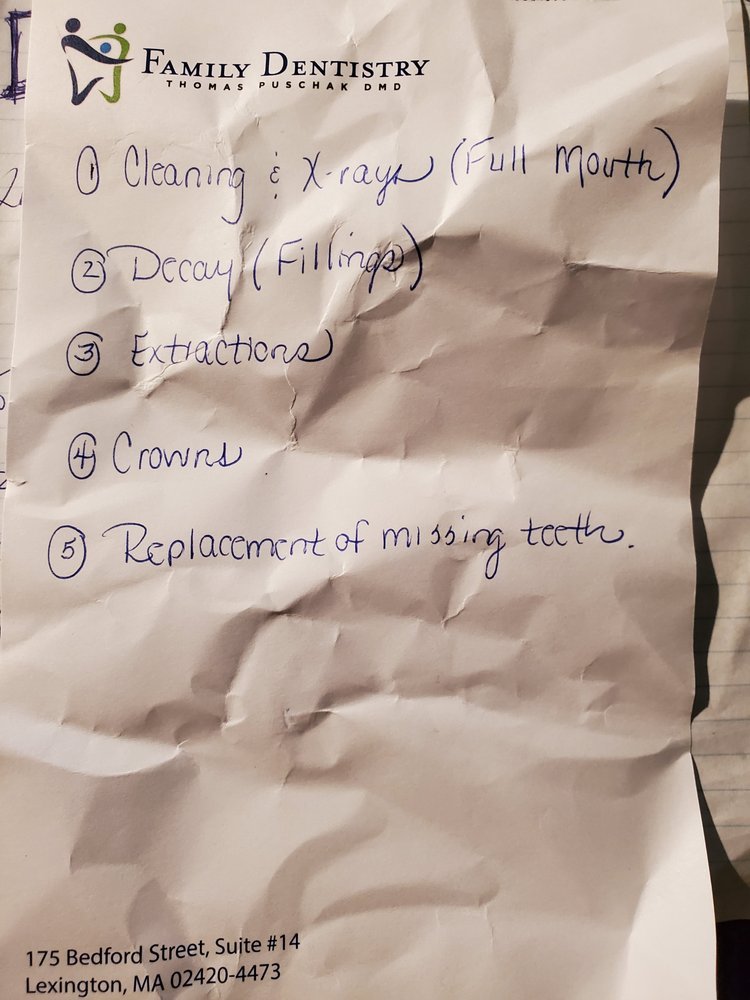 FAMILY DENTISTRY
THOMAS PUSCHAK DMD
① Cleaning & X-rays (Full Mouth)
② Decay (Fillings)
③ Extractions
④ Crowns
⑤ Replacement of missing teeth.
175 Bedford Street, Suite #14
Lexington, MA 02420-4473